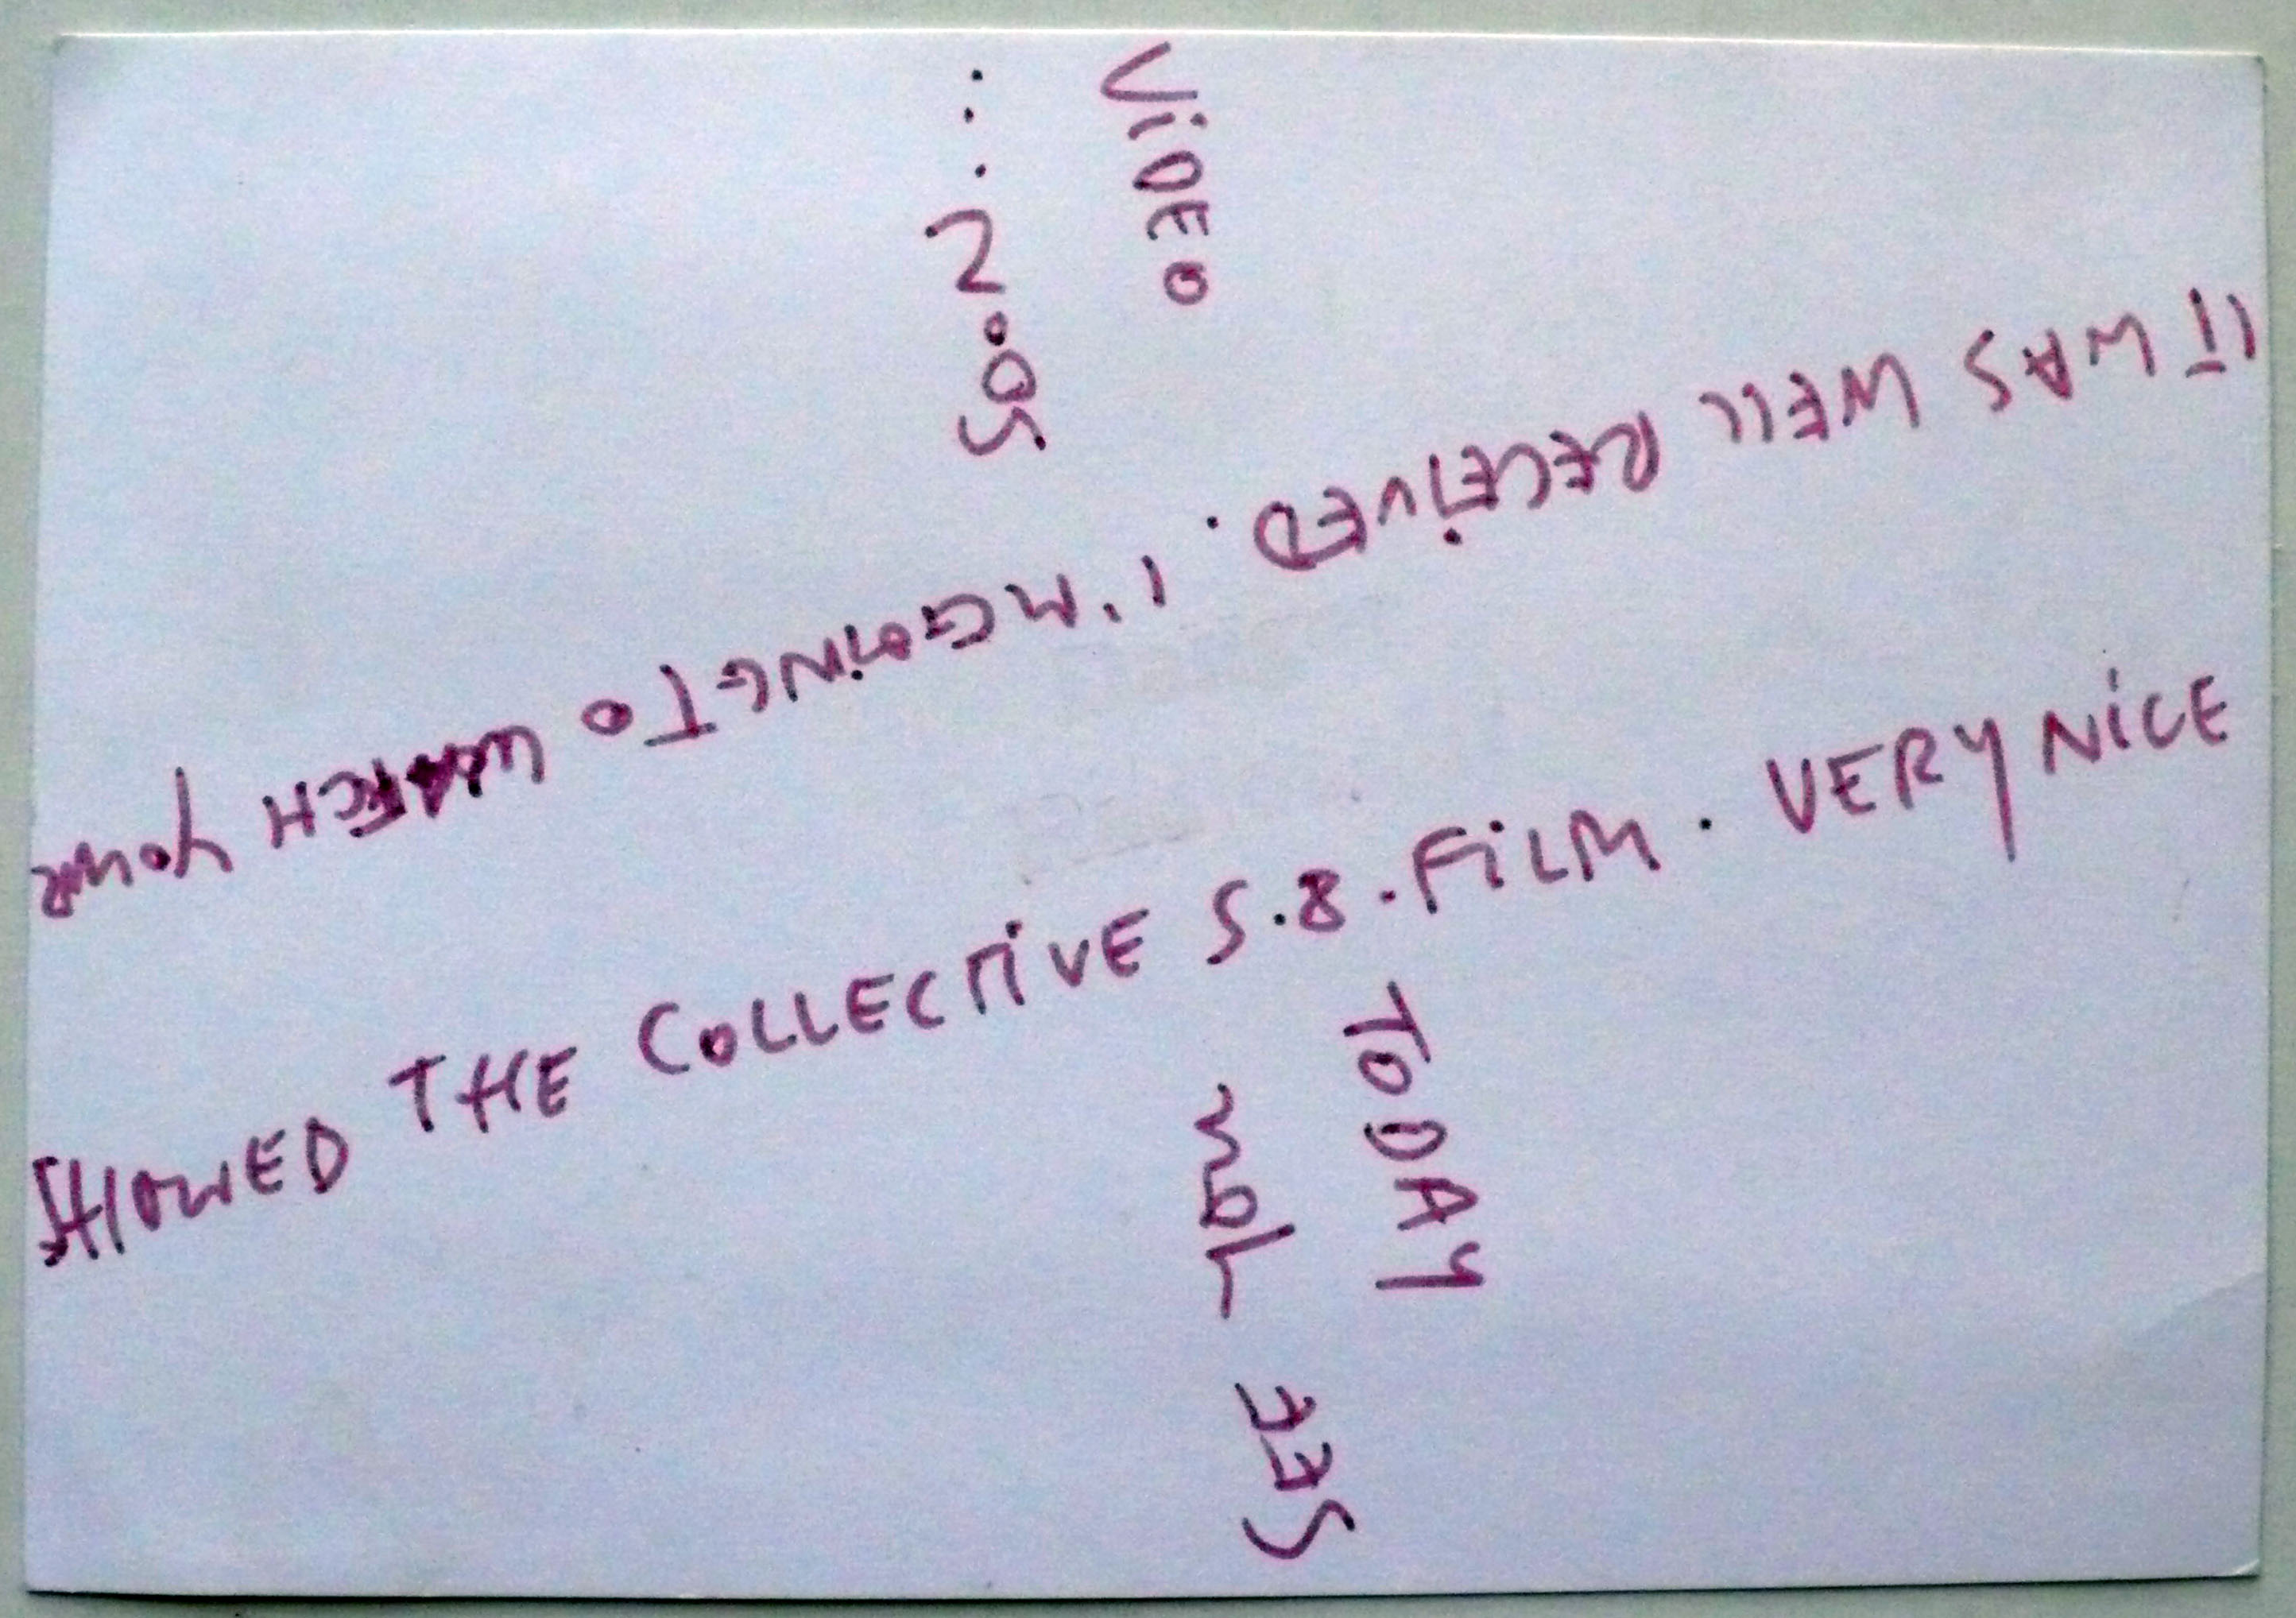 SHOWED THE COLLECTIVE S.8.FILM. VERY NICE
IT WAS WELL RECEIVED. I'M GOING TO WATCH YOUR
VIDEO TODAY
SEE YOU SOON...